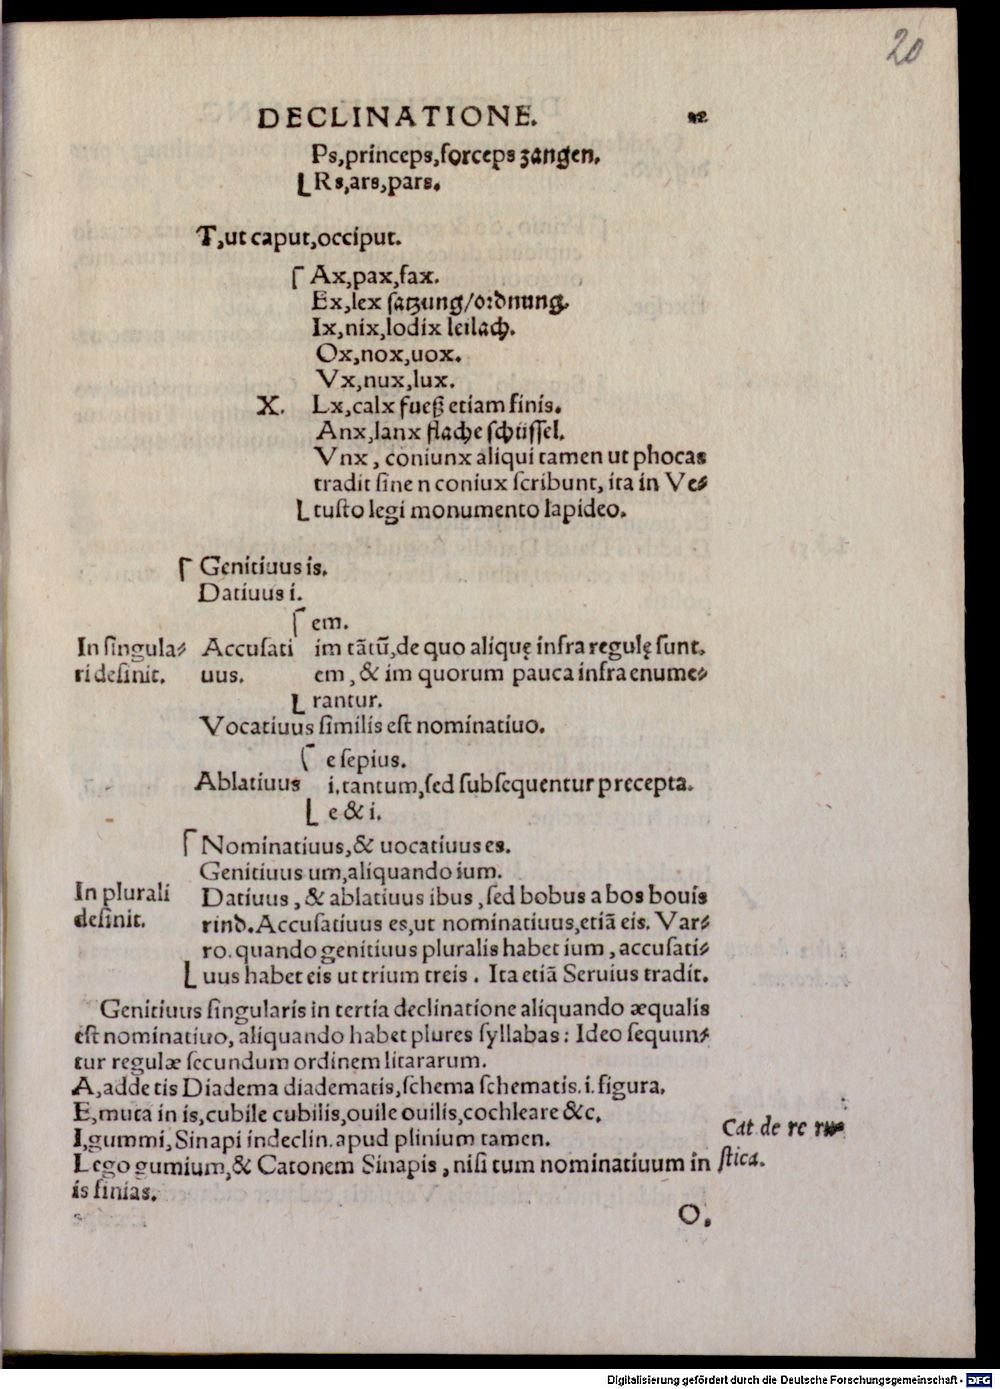 20
DECLINATIONE.
Ps,princeps,forceps zangen.
Rs,ars,pars.
T,ut caput,occiput.
Ax,pax,fax.
Ex,lex satzung/ordnung.
Ix,nix,lodix leilach.
Ox,nox,uox.
Vx,nux,lux.
X. Lx,calx fueß etiam finis.
Anx,lanx flache schüssel.
Vnx, coniunx aliqui tamen ut phocas
tradit sine n coniux scribunt, ita in Ve⸗
tusto legi monumento lapideo.
Genitiuus is.
Datiuus i.
em.
In singula⸗ Accusati im tãtũ,de quo aliquę infra regulę sunt.
ri desinit. uus. em, & im quorum pauca infra enume⸗
rantur.
Vocatiuus similis est nominatiuo.
e sepius.
Ablatiuus i.tantum,sed subsequentur precepta.
e & i.
Nominatiuus,& uocatiuus es.
Genitiuus um,aliquando ium.
In plurali Datiuus, & ablatiuus ibus, sed bobus a bos bouis
desinit. rind. Accusatiuus es,ut nominatiuus,etiã eis. Var⸗
ro. quando genitiuus pluralis habet ium, accusati⸗
uus habet eis ut trium treis. Ita etiã Seruius tradit.
Genitiuus singularis in tertia declinatione aliquando æqualis
est nominatiuo, aliquando habet plures syllabas: Ideo sequun⸗
tur regulæ secundum ordinem litararum.
A,adde tis Diadema diadematis,schema schematis.i.figura.
E,muta in is,cubile cubilis,ouile ouilis,cochleare &c.
I,gummi,Sinapi indeclin. apud plinium tamen.
Cat de re ru⸗
Lego gumium,& Catonem Sinapis, nisi tum nominatiuum in
stica.
is finias.
O.
Digitalisierung gefördert durch die Deutsche Forschungsgemeinschaft - DFG